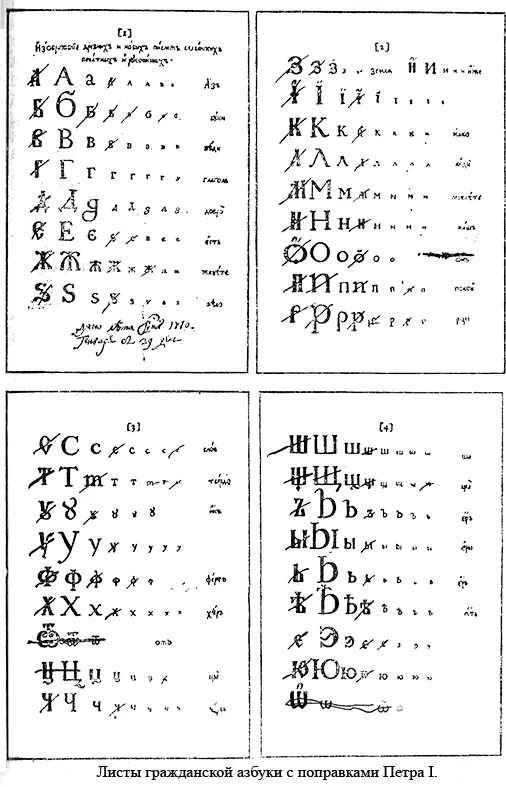 [1]
Изображение древнихъ и новыхъ писменъ славенскихъ
печатныхъ и рукописныхъ.
А А а а а а а азъ
Б Б б б б б б буки
В В в в в в в вѣди
Г Г г г г г г глаголь
Д Д д д д д д добро
Е Е є е е е е есть
Ж Ж ж ж ж ж живѣте
Ѕ Ѕ ѕ ѕ ѕ ѕ ѕ ѕѣло
Дано лѣта Гдня 1710.
Генваря въ 29 день
[2]
З З з з з земля И И и и и иже
І Ї ї ї і і і і
К К к к к к к како
Л Л л л л л л люди
М М м м м м м мыслѣте
Н Н н н н н н нашъ
О О о о о о онъ
П П п п п п п покой
Р Р р р р р р рцы
[3]
С С с с с с с слово
Т Т т т т т т твердо
У У у у у у
Ф Ф ф ф ф ф фертъ
Х Х х х х х х хѣръ
Ѿ ѿ ѿ отъ
Ц Ц ц ц ц ц ц цы
Ч Ч ч ч ч ч ч червь
[4]
Ш Ш ш ш ш ш ш ша
Щ Щ щ щ щ щ щ ща
Ъ Ъ ъ ъ ъ ъ ъ еръ
Ы Ы ы ы ы ы ы еры
Ь Ь ь ь ь ь ь ерь
Ѣ Ѣ ѣ ѣ ѣ ѣ ѣ ять
Э Э э э э э
Ю Ю ю ю ю ю ю
Ѡ ѡ ѡ о
Листы гражданской азбуки с поправками Петра I.